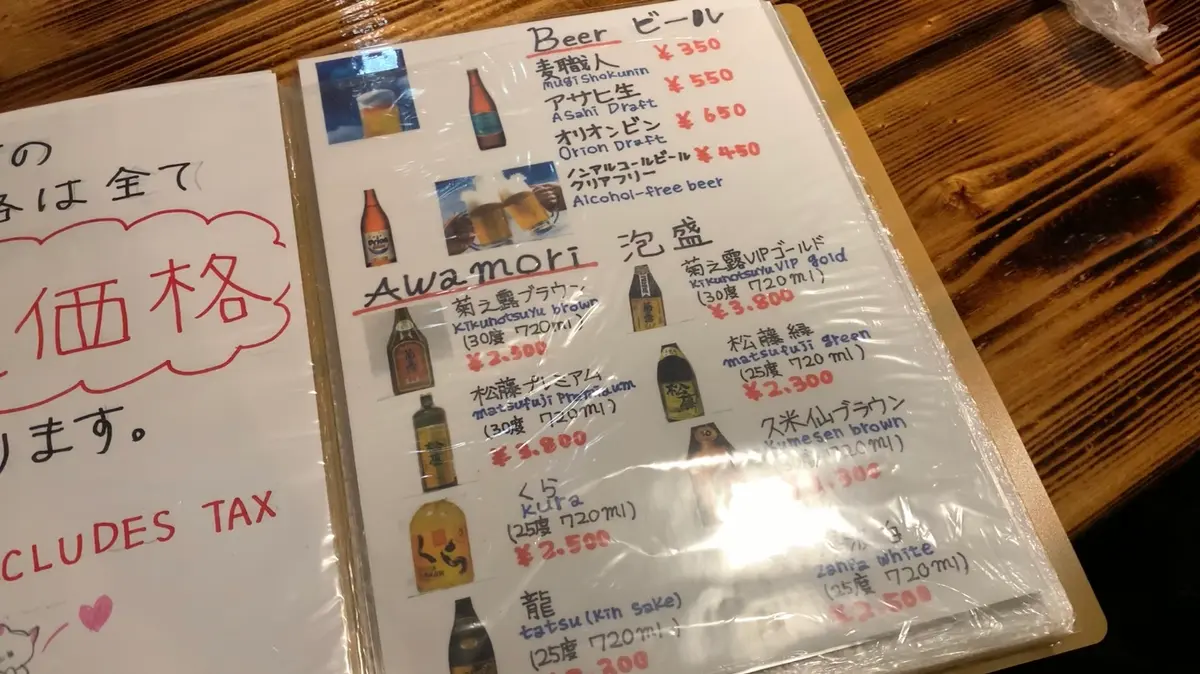 の
は全て
価格
ります。
CLUDES TAX
Beer ビール
麦職人 ¥350
Mugishokunin
アサヒ生 ¥550
Asahi Draft
オリオンビン ¥650
Orion Draft
ノンアルコールビール ¥450
クリアフリー
Alcohol-free beer
Awamori 泡盛
菊之露ブラウン
Kikunotsuyu brown
(30度 720ml)
¥2.500
松藤プレミアム
matsufuji Premium
(30度 720ml)
¥3.800
くら
kura
(25度 720ml)
¥2.500
龍
tatsu (kin sake)
(25度 720ml)
菊之露VIPゴールド
Kikunotsuyu VIP gold
(30度 720ml)
¥3.800
松藤緑
matsufuji green
(25度 720ml)
¥2.300
久米仙ブラウン
Kumesen brown
720ml)
white
(25度 720ml)